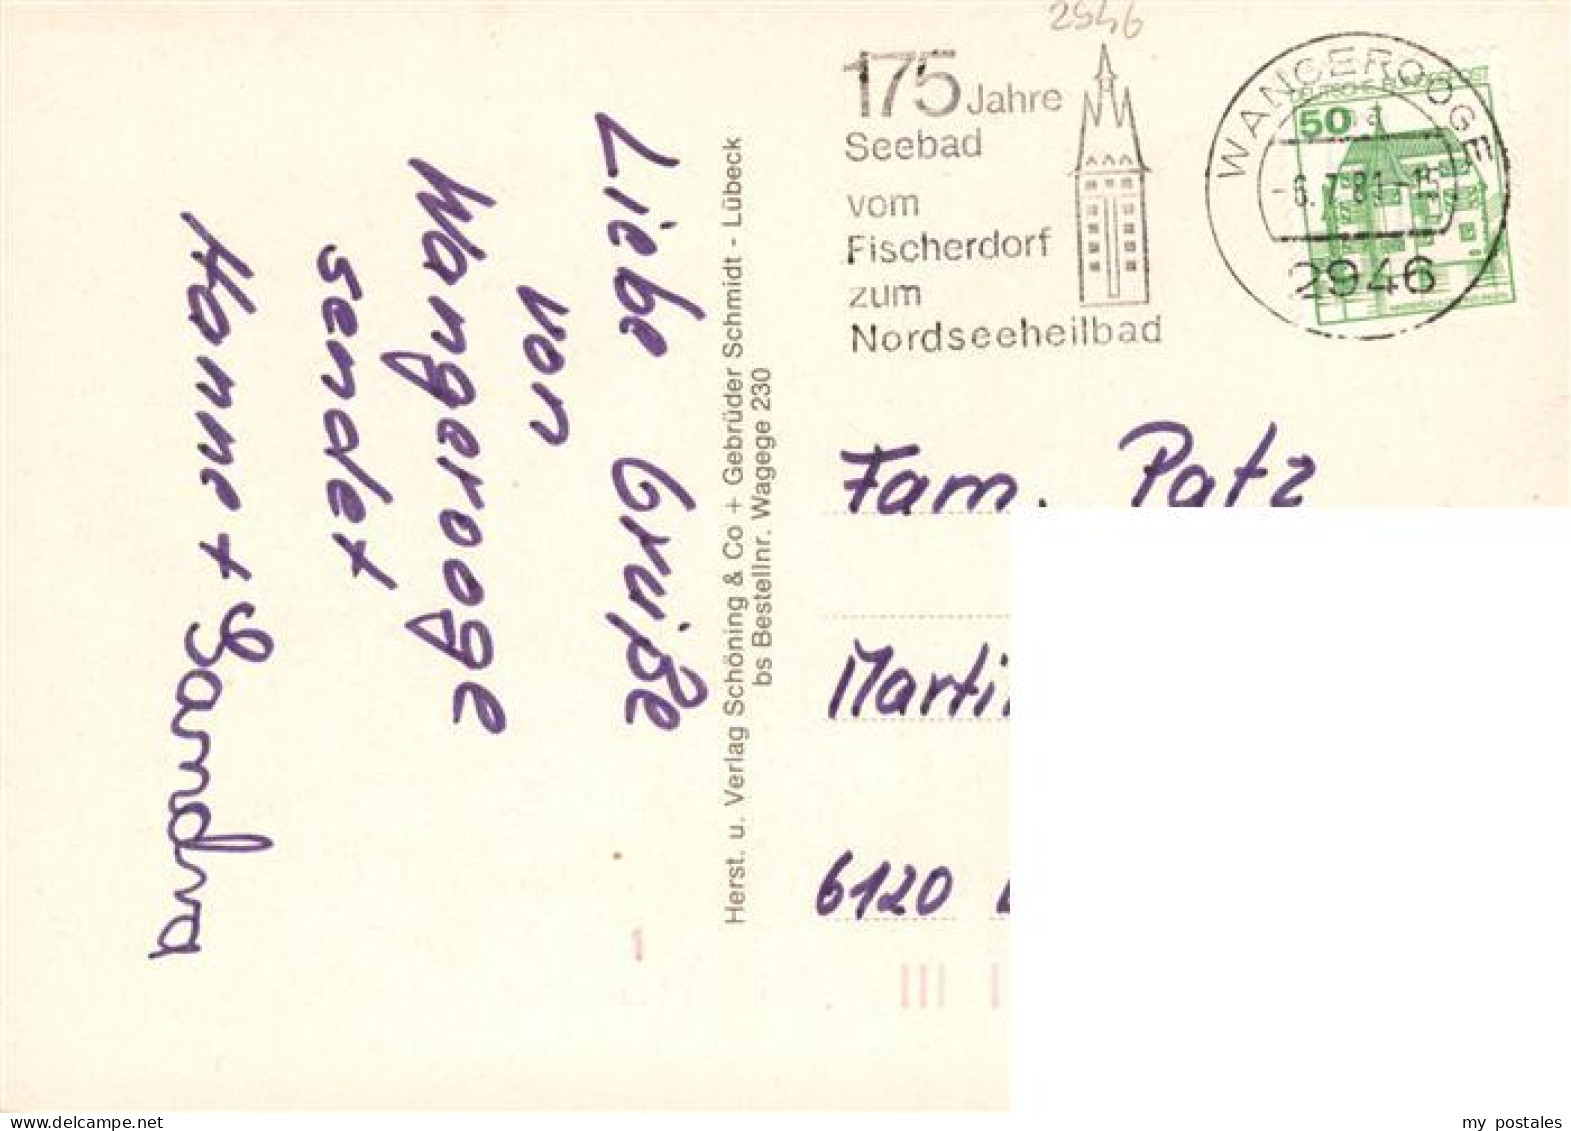 Liebe Grüße
von
Wangerooge
sendet
Hanne + Sandra
Herst. u. Verlag Schöning & Co + Gebrüder Schmidt - Lübeck
bs Bestellnr. Wagege 230
2946
175 Jahre
Seebad
vom
Fischerdorf
zum
Nordseeheilbad
WANGEROOGE
DEUTSCHE BUNDESPOST
50
a
-6.7.81-15
2946
Fam. Patz
Martin
6120
1
my postales